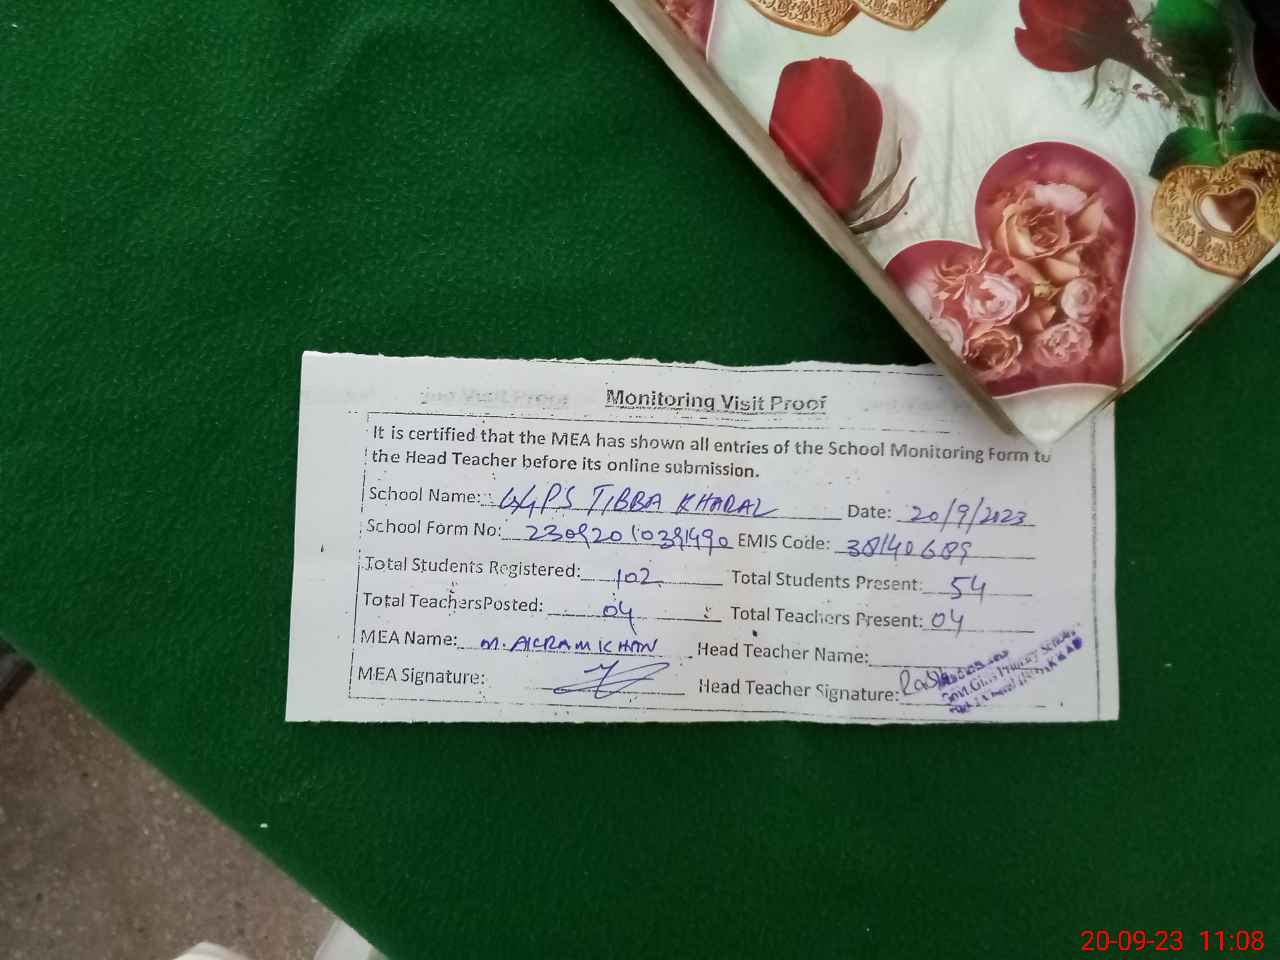 Monitoring Visit Proof
It is certified that the MEA has shown all entries of the School Monitoring Form to
the Head Teacher before its online submission.
School Name: GGPS TIBBA KHARAL Date: 20/9/2023
School Form No: EMIS Code: 38140689
Total Students Registered: 102 Total Students Present: 54
Total TeachersPosted: 04 Total Teachers Present: 04
MEA Name: M. AKRAM KHAN Head Teacher Name:
MEA Signature: Head Teacher Signature:
Govt. Girls Primary School
20-09-23 11:08